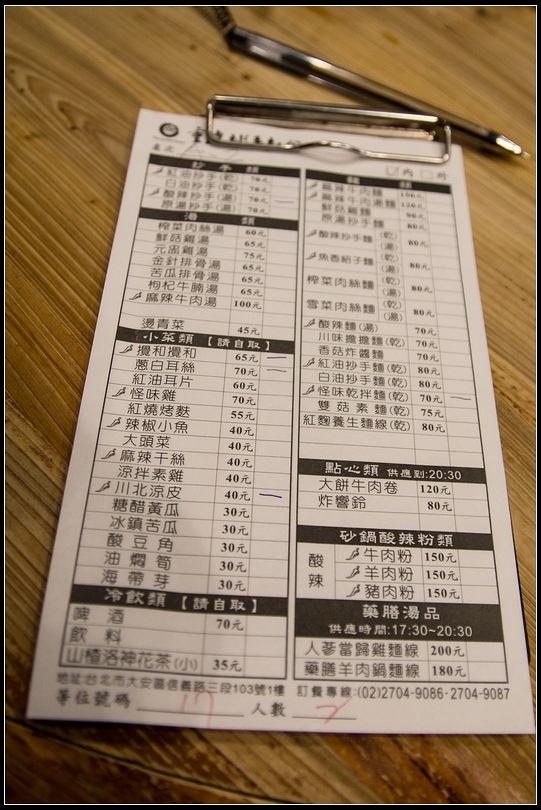 抄手類
紅油抄手(乾) 70元
白油抄手(乾) 70元
酸辣抄手(湯) 70元
原湯抄手(湯) 70元
湯類
榨菜肉絲湯 60元
鮮菇雞湯 65元
元盅雞湯 75元
金針排骨湯 65元
苦瓜排骨湯 65元
枸杞牛腩湯 65元
麻辣牛肉湯 100元
燙青菜 45元
小菜類【請自取】
攪和攪和 65元
蔥白耳絲 70元
紅油耳片 60元
怪味雞 70元
紅燒烤麩 55元
辣椒小魚 40元
大頭菜 40元
麻辣干絲 40元
涼拌素雞 40元
川北涼皮 40元
糖醋黃瓜 30元
冰鎮苦瓜 30元
酸豆角 30元
油燜筍 30元
海帶芽 30元
冷飲類【請自取】
啤酒 70元
飲料
山楂洛神花茶(小) 35元
內 外
麵類
麻辣牛肉麵 150元
牛肉麵 120元
鮮菇雞麵 90元
原湯抄手麵 80元
酸辣抄手麵 (乾)(湯) 80元
魚香紹子麵 (乾)(湯) 80元
榨菜肉絲麵 (乾)(湯) 80元
雪菜肉絲麵 (乾)(湯) 80元
酸辣麵(湯) 70元
川味擔擔麵(乾) 70元
香菇炸醬麵 70元
紅油抄手麵(乾) 80元
白油抄手麵(乾) 80元
怪味乾拌麵(乾) 70元
雙菇素麵(乾) 75元
紅麴養生麵線(乾) 80元
點心類 供應到:20:30
大餅牛肉卷 120元
炸響鈴 80元
砂鍋酸辣粉類
酸辣
牛肉粉 150元
羊肉粉 150元
豬肉粉 150元
藥膳湯品
供應時間:17:30~20:30
人蔘當歸雞麵線 200元
藥膳羊肉鍋麵線 180元
地址:台北市大安區信義路三段103號1樓 訂餐專線:(02)2704-9086·2704-9087
等位號碼 17 人數 2